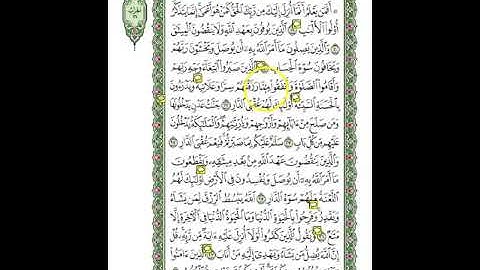 ۞ أَفَمَن يَعْلَمُ أَنَّمَا أُنزِلَ إِلَيْكَ مِن رَّبِّكَ ٱلْحَقُّ كَمَنْ هُوَ أَعْمَىٰٓ إِنَّمَا يَتَذَكَّرُ
أُو۟لُوا۟ ٱلْأَلْبَٰبِ ١٩ ٱلَّذِينَ يُوفُونَ بِعَهْدِ ٱللَّهِ وَلَا يَنقُضُونَ ٱلْمِيثَٰقَ
٢٠ وَٱلَّذِينَ يَصِلُونَ مَآ أَمَرَ ٱللَّهُ بِهِۦٓ أَن يُوصَلَ وَيَخْشَوْنَ رَبَّهُمْ
وَيَخَافُونَ سُوٓءَ ٱلْحِسَابِ ٢١ وَٱلَّذِينَ صَبَرُوا۟ ٱبْتِغَآءَ وَجْهِ رَبِّهِمْ
وَأَقَامُوا۟ ٱلصَّلَوٰةَ وَأَنفَقُوا۟ مِمَّا رَزَقْنَٰهُمْ سِرًّا وَعَلَانِيَةً وَيَدْرَءُونَ
بِٱلْحَسَنَةِ ٱلسَّيِّئَةَ أُو۟لَٰٓئِكَ لَهُمْ عُقْبَى ٱلدَّارِ ٢٢ جَنَّٰتُ عَدْنٍ يَدْخُلُونَهَا
وَمَن صَلَحَ مِنْ ءَابَآئِهِمْ وَأَزْوَٰجِهِمْ وَذُرِّيَّٰتِهِمْ وَٱلْمَلَٰٓئِكَةُ يَدْخُلُونَ
عَلَيْهِم مِّن كُلِّ بَابٍ ٢٣ سَلَٰمٌ عَلَيْكُم بِمَا صَبَرْتُمْ فَنِعْمَ عُقْبَى ٱلدَّارِ ٢٤
وَٱلَّذِينَ يَنقُضُونَ عَهْدَ ٱللَّهِ مِنۢ بَعْدِ مِيثَٰقِهِۦ وَيَقْطَعُونَ
مَآ أَمَرَ ٱللَّهُ بِهِۦٓ أَن يُوصَلَ وَيُفْسِدُونَ فِى ٱلْأَرْضِ أُو۟لَٰٓئِكَ لَهُمُ
ٱللَّعْنَةُ وَلَهُمْ سُوٓءُ ٱلدَّارِ ٢٥ ٱللَّهُ يَبْسُطُ ٱلرِّزْقَ لِمَن يَشَآءُ
وَيَقْدِرُ وَفَرِحُوا۟ بِٱلْحَيَوٰةِ ٱلدُّنْيَا وَمَا ٱلْحَيَوٰةُ ٱلدُّنْيَا فِى ٱلْءَاخِرَةِ إِلَّا
مَتَٰعٌ ٢٦ وَيَقُولُ ٱلَّذِينَ كَفَرُوا۟ لَوْلَآ أُنزِلَ عَلَيْهِ ءَايَةٌ مِّن رَّبِّهِۦ قُلْ
إِنَّ ٱللَّهَ يُضِلُّ مَن يَشَآءُ وَيَهْدِىٓ إِلَيْهِ مَنْ أَنَابَ ٢٧ ٱلَّذِينَ ءَامَنُوا۟